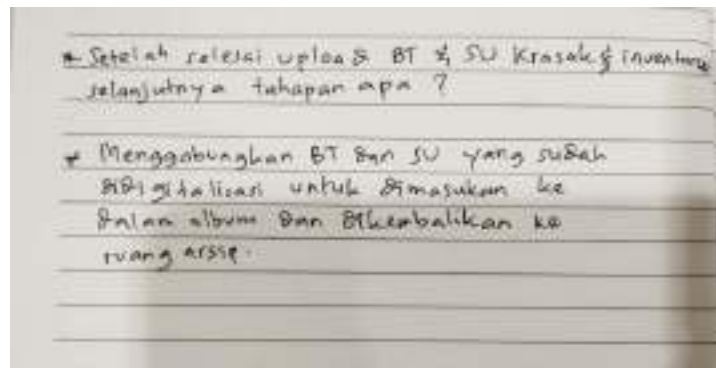 * Setelah selesai upload BT & SU Krasak & inventaris
selanjutnya tahapan apa ?
* Menggabungkan BT dan SU yang sudah
didigitalisasi untuk dimasukan ke
dalam album dan dikembalikan ke
ruang arsip.